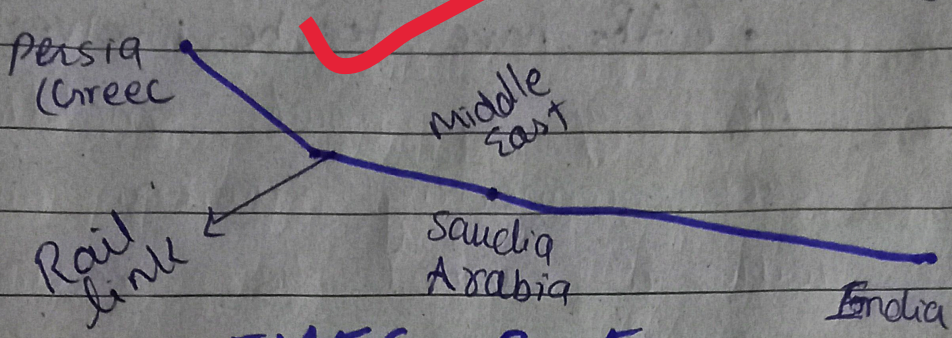 Persia
(Greec
Middle
East
Rail
link
Saudia
Arabia
India